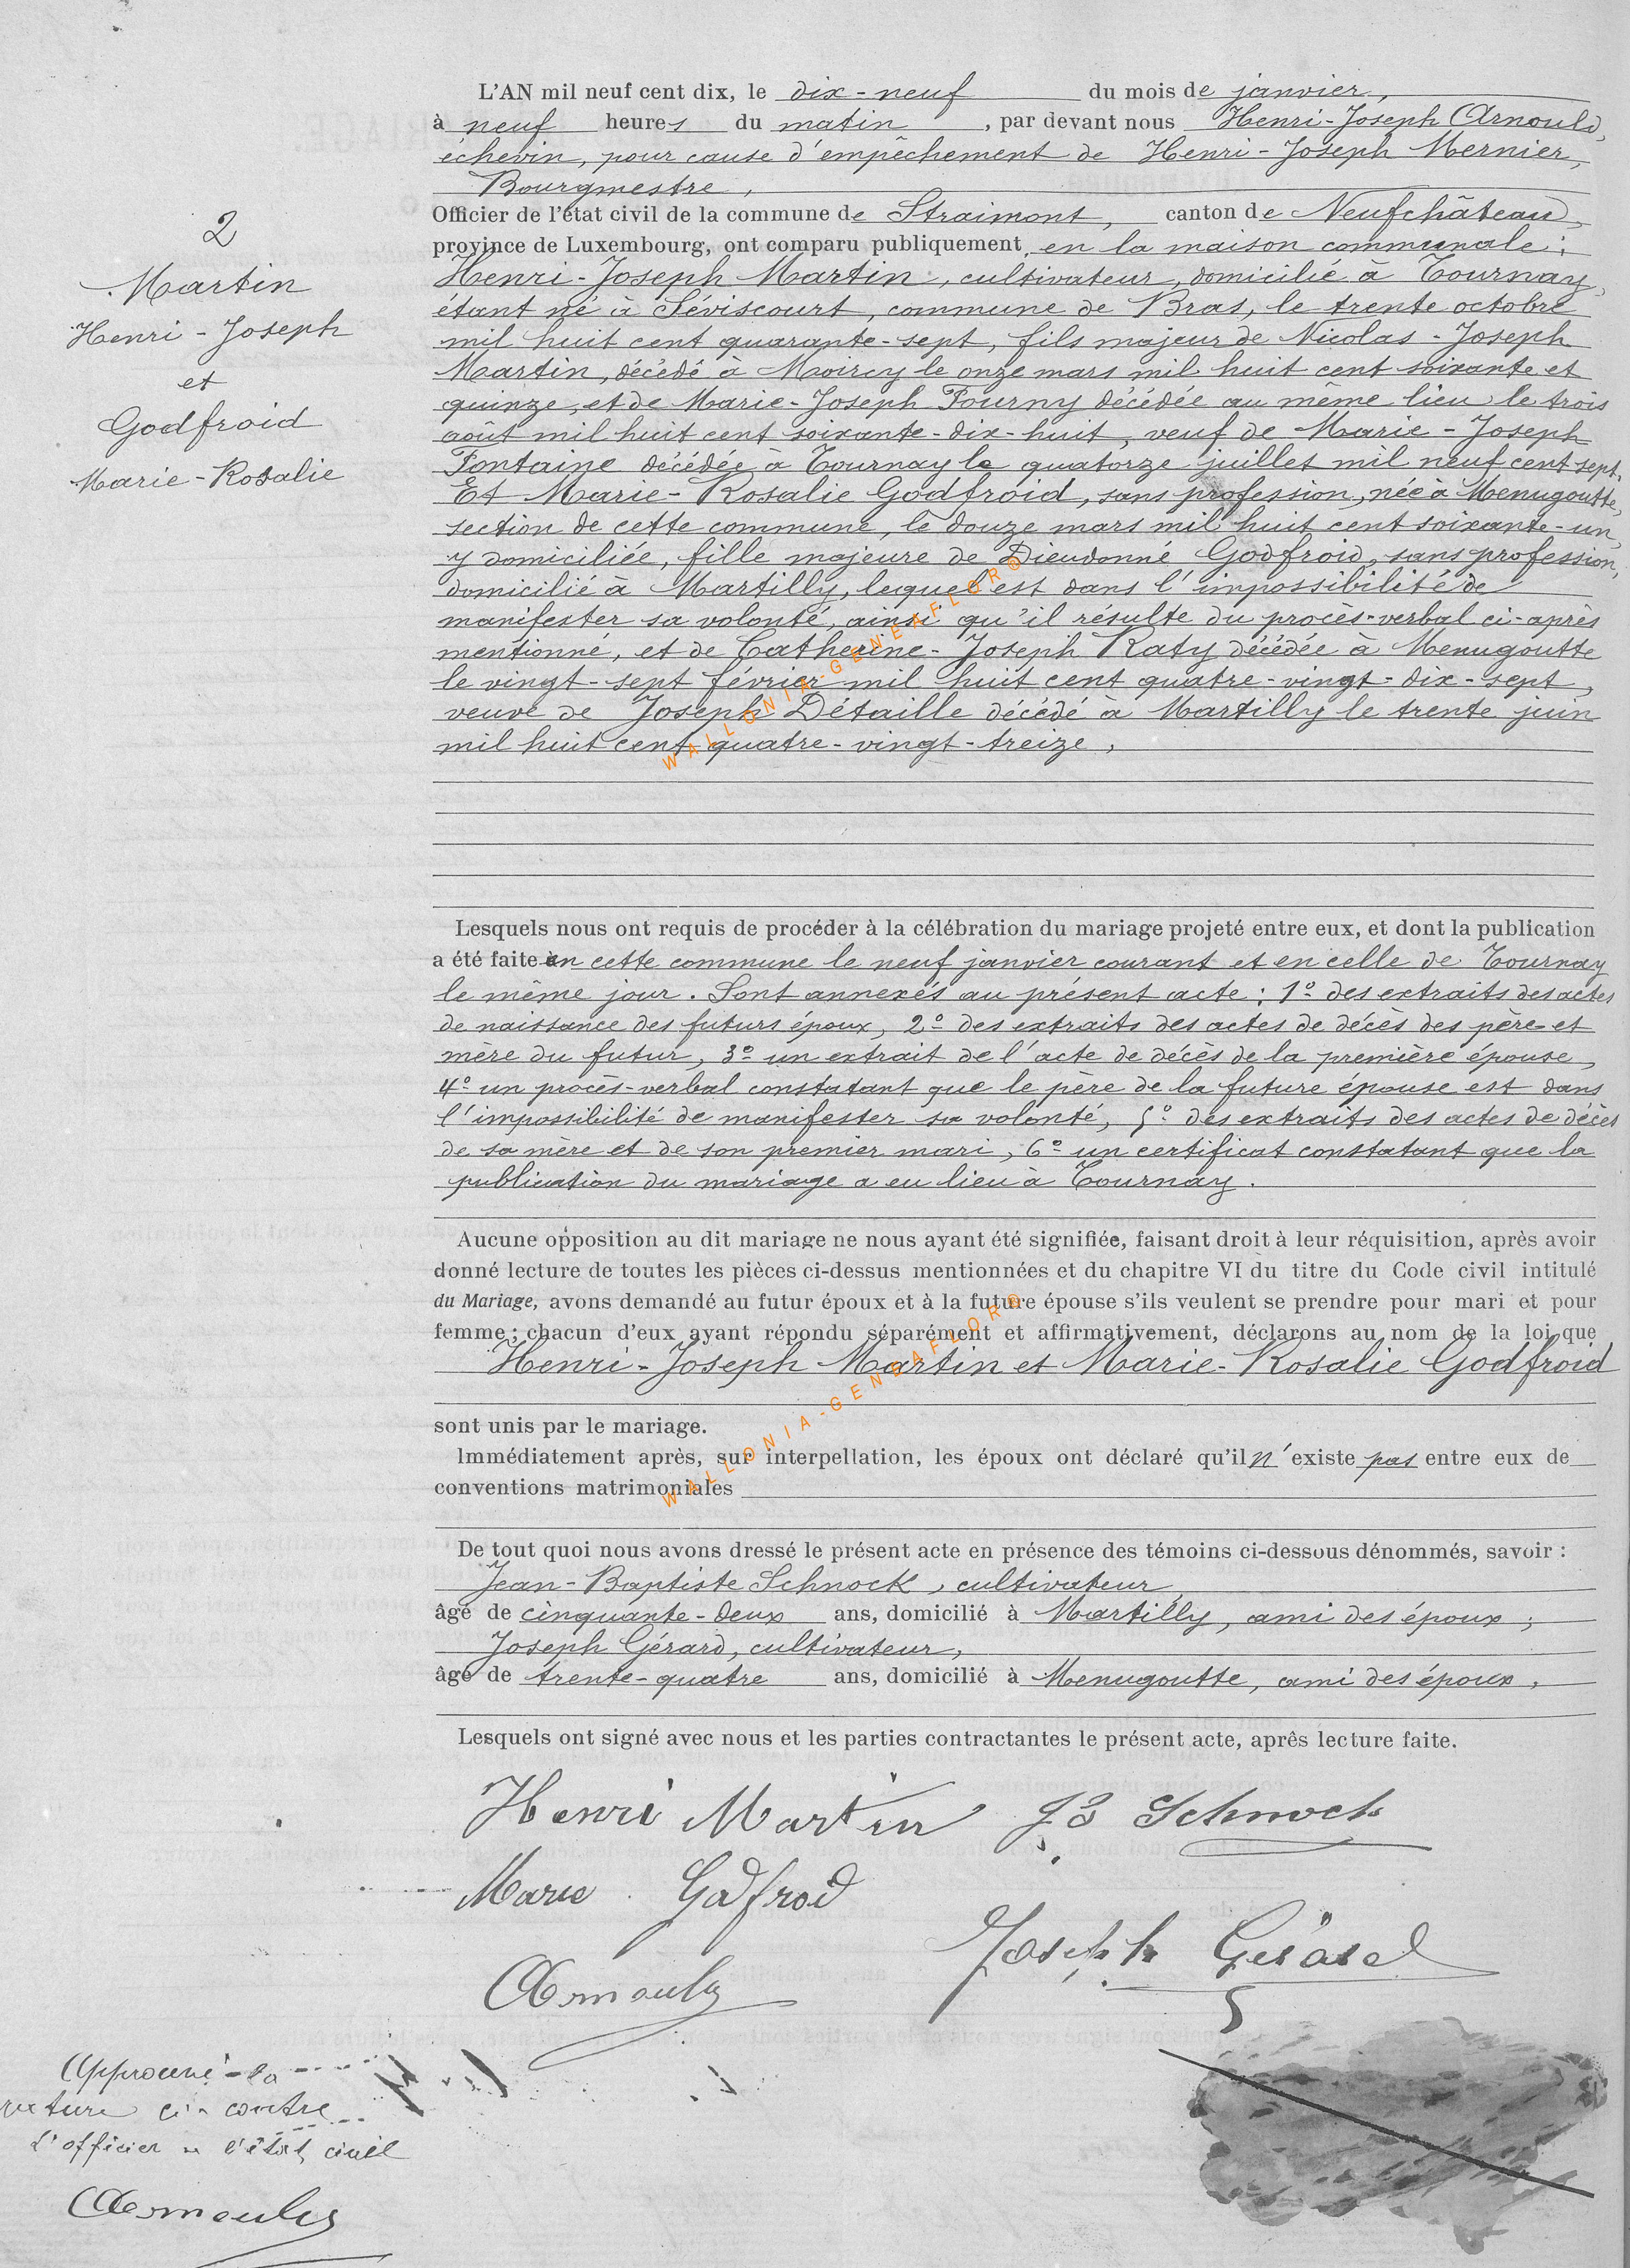 2
Martin
Henri-Joseph
et
Godfroid
Marie-Rosalie
L'AN mil neuf cent dix, le dix-neuf du mois de janvier,
à neuf heures du matin, par devant nous Henri-Joseph Arnould,
échevin, pour cause d'empêchement de Henri-Joseph Mernier,
Bourgmestre,
Officier de l'état civil de la commune de Straimont, canton de Neufchâteau,
province de Luxembourg, ont comparu publiquement en la maison communale:
Henri-Joseph Martin, cultivateur, domicilié à Tournay,
étant né à Séviscourt, commune de Bras, le trente octobre
mil huit cent quarante-sept, fils majeur de Nicolas-Joseph
Martin, décédé à Moircy le onze mars mil huit cent soixante et
quinze, et de Marie-Joseph Fourny décédée au même lieu le trois
août mil huit cent soixante-dix-huit, veuf de Marie-Joseph
Fontaine décédée à Tournay le quatorze juillet mil neuf cent sept.
Et Marie-Rosalie Godfroid, sans profession, née à Menugoutte,
section de cette commune, le douze mars mil huit cent soixante-un,
y domiciliée, fille majeure de Dieudonné Godfroid, sans profession,
domicilié à Martilly, lequel est dans l'impossibilité de
manifester sa volonté, ainsi qu'il résulte du procès-verbal ci-après
mentionné, et de Catherine-Joseph Raty décédée à Menugoutte
le vingt-sept février mil huit cent quatre-vingt-dix-sept,
veuve de Joseph Détaille décédé à Martilly le trente juin
mil huit cent quatre-vingt-treize,
WALLONIA-GENEAFLOR®
Lesquels nous ont requis de procéder à la célébration du mariage projeté entre eux, et dont la publication
a été faite en cette commune le neuf janvier courant et en celle de Tournay
le même jour. Sont annexés au présent acte: 1º des extraits des actes
de naissance des futurs époux, 2º des extraits des actes de décès des père et
mère du futur, 3º un extrait de l'acte de décès de la première épouse,
4º un procès-verbal constatant que le père de la future épouse est dans
l'impossibilité de manifester sa volonté, 5º des extraits des actes de décès
de sa mère et de son premier mari, 6º un certificat constatant que la
publication du mariage a eu lieu à Tournay.
Aucune opposition au dit mariage ne nous ayant été signifiée, faisant droit à leur réquisition, après avoir
donné lecture de toutes les pièces ci-dessus mentionnées et du chapitre VI du titre du Code civil intitulé
du Mariage, avons demandé au futur époux et à la future épouse s'ils veulent se prendre pour mari et pour
femme; chacun d'eux ayant répondu séparément et affirmativement, déclarons au nom de la loi que
Henri-Joseph Martin et Marie-Rosalie Godfroid
sont unis par le mariage.
Immédiatement après, sur interpellation, les époux ont déclaré qu'il n'existe pas entre eux de
conventions matrimoniales
WALLONIA-GENEAFLOR®
De tout quoi nous avons dressé le présent acte en présence des témoins ci-dessous dénommés, savoir:
Jean-Baptiste Schnock, cultivateur
âgé de cinquante-deux ans, domicilié à Martilly, ami des époux;
Joseph Gérard, cultivateur,
âgé de trente-quatre ans, domicilié à Menugoutte, ami des époux,
Lesquels ont signé avec nous et les parties contractantes le présent acte, après lecture faite.
Henri Martin JB Schnock
Marie Godfroid
Joseph Gérard
Arnould
Approuvé la
rature ci-contre
L'officier de l'état civil
Arnould